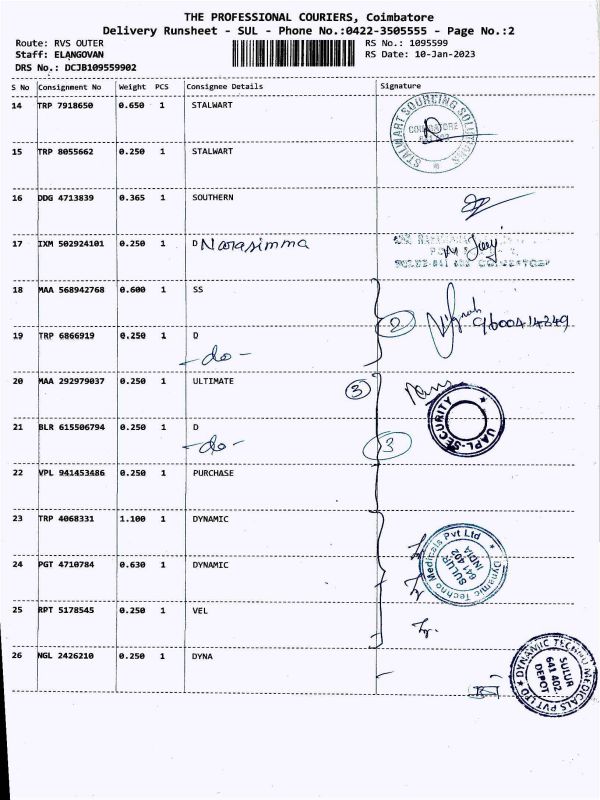 THE PROFESSIONAL COURIERS, Coimbatore
Delivery Runsheet - SUL - Phone No.:0422-3505555 - Page No.:2
Route: RVS OUTER
RS No.: 1095599
Staff: ELANGOVAN
RS Date: 10-Jan-2023
DRS No.: DCJB109559902
S No Consignment No Weight PCS Consignee Details Signature
14 TRP 7918650 0.650 1 STALWART
STALWART SOURCING SOLUTIONS
COIMBATORE
15 TRP 8055662 0.250 1 STALWART
16 DDG 4713839 0.365 1 SOUTHERN
17 IXM 502924101 0.250 1 D Narasimma
18 MAA 568942768 0.600 1 SS
2 9600414249
19 TRP 6866919 0.250 1 D
-do-
20 MAA 292979037 0.250 1 ULTIMATE
3
UAPL-SECURITY
21 BLR 615506794 0.250 1 D
-do-
3
22 VPL 941453486 0.250 1 PURCHASE
23 TRP 4068331 1.100 1 DYNAMIC
Dynamic Techno Medicals Pvt Ltd
SULUR
641 402
INDIA
24 PGT 4710784 0.630 1 DYNAMIC
25 RPT 5178545 0.250 1 VEL
26 NGL 2426210 0.250 1 DYNA
DYNAMIC TECHNO MEDICALS PVT LTD
SULUR
641 402
DEPOT